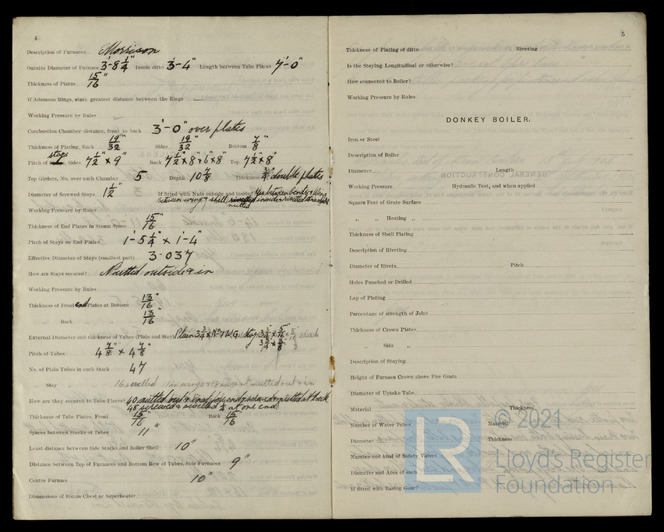 4
Description of Furnaces Morrison
Outside Diameter of Furnace 3'-8 1/4" Inside ditto 3'-4" Length between Tube Plates 7'-0"
Thickness of Plates 15/16"
If Adamson Rings, state greatest distance between the Rings —
Working Pressure by Rules
Combustion Chamber distance, front to back 3'-0" over plates
Thickness of Plating, Back 19/32" Sides 19/32" Bottom 7/8"
Pitch of stays Sides 7 1/2" × 9" Back 7 1/2" × 8" × 6" × 8" Top 7 1/2" × 8"
Top Girders, No. over each Chamber 5 Depth 10 7/8 Thickness double plates
Diameter of Screwed Stays 1 1/2" If fitted with Nuts outside and inside?
Working Pressure by Rules
Thickness of End Plates in Steam Space 15/16"
Pitch of Stays on End Plates 1'-5 1/4" × 1'-4"
Effective Diameter of Stays (smallest part) 3.037
How are Stays secured? Nutted outside & in
Working Pressure by Rules
Thickness of Front end Plates at Bottom 13/16"
Back 13/16"
External Diameter and thickness of Tubes (Plain and Stay) Plain 3 1/4 × No 7 W.G. Stay
Pitch of Tubes 4 7/8" × 4 7/8"
No. of Plain Tubes in each Stack 47
Stay
How are they secured to Tube Plates?
Thickness of Tube Plates, Front 15/16 Back 15/16
Spaces between Stacks of Tubes 11"
Least distance between Side Stacks and Boiler Shell 10"
Distance between Top of Furnaces and Bottom Row of Tubes, Side Furnaces 9"
Centre Furnace 10"
Dimensions of Steam Chest or Superheater
5
Thickness of Plating of ditto Riveting
Is the Staying Longitudinal or otherwise?
How connected to Boiler?
Working Pressure by Rules
DONKEY BOILER.
Iron or Steel
Description of Boiler
Diameter Length
Working Pressure Hydraulic Test, and when applied
Square Feet of Grate Surface
" " Heating "
Thickness of Shell Plating
Description of Riveting
Diameter of Rivets Pitch
Holes Punched or Drilled
Lap of Plating
Percentage of strength of Joint
Thickness of Crown Plates
" Side "
Description of Staying
Height of Furnace Crown above Fire Grate
Diameter of Uptake Tube
Material Thickness
Number of Water Tubes Material
Diameter Thickness
Number and kind of Safety Valves
Diameter and Area of each
If fitted with Easing Gear?
LR
© 2021
Lloyd's Register
Foundation